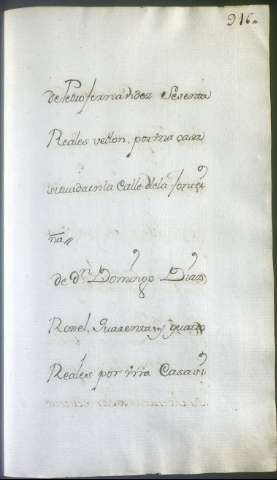 916.
de Pedro fernandez Sesenta
Reales vellon, por una casa
situada en la Calle de la
na,,
de dn. Domingo Diaz
Quarenta y quatro
Reales por una Casa